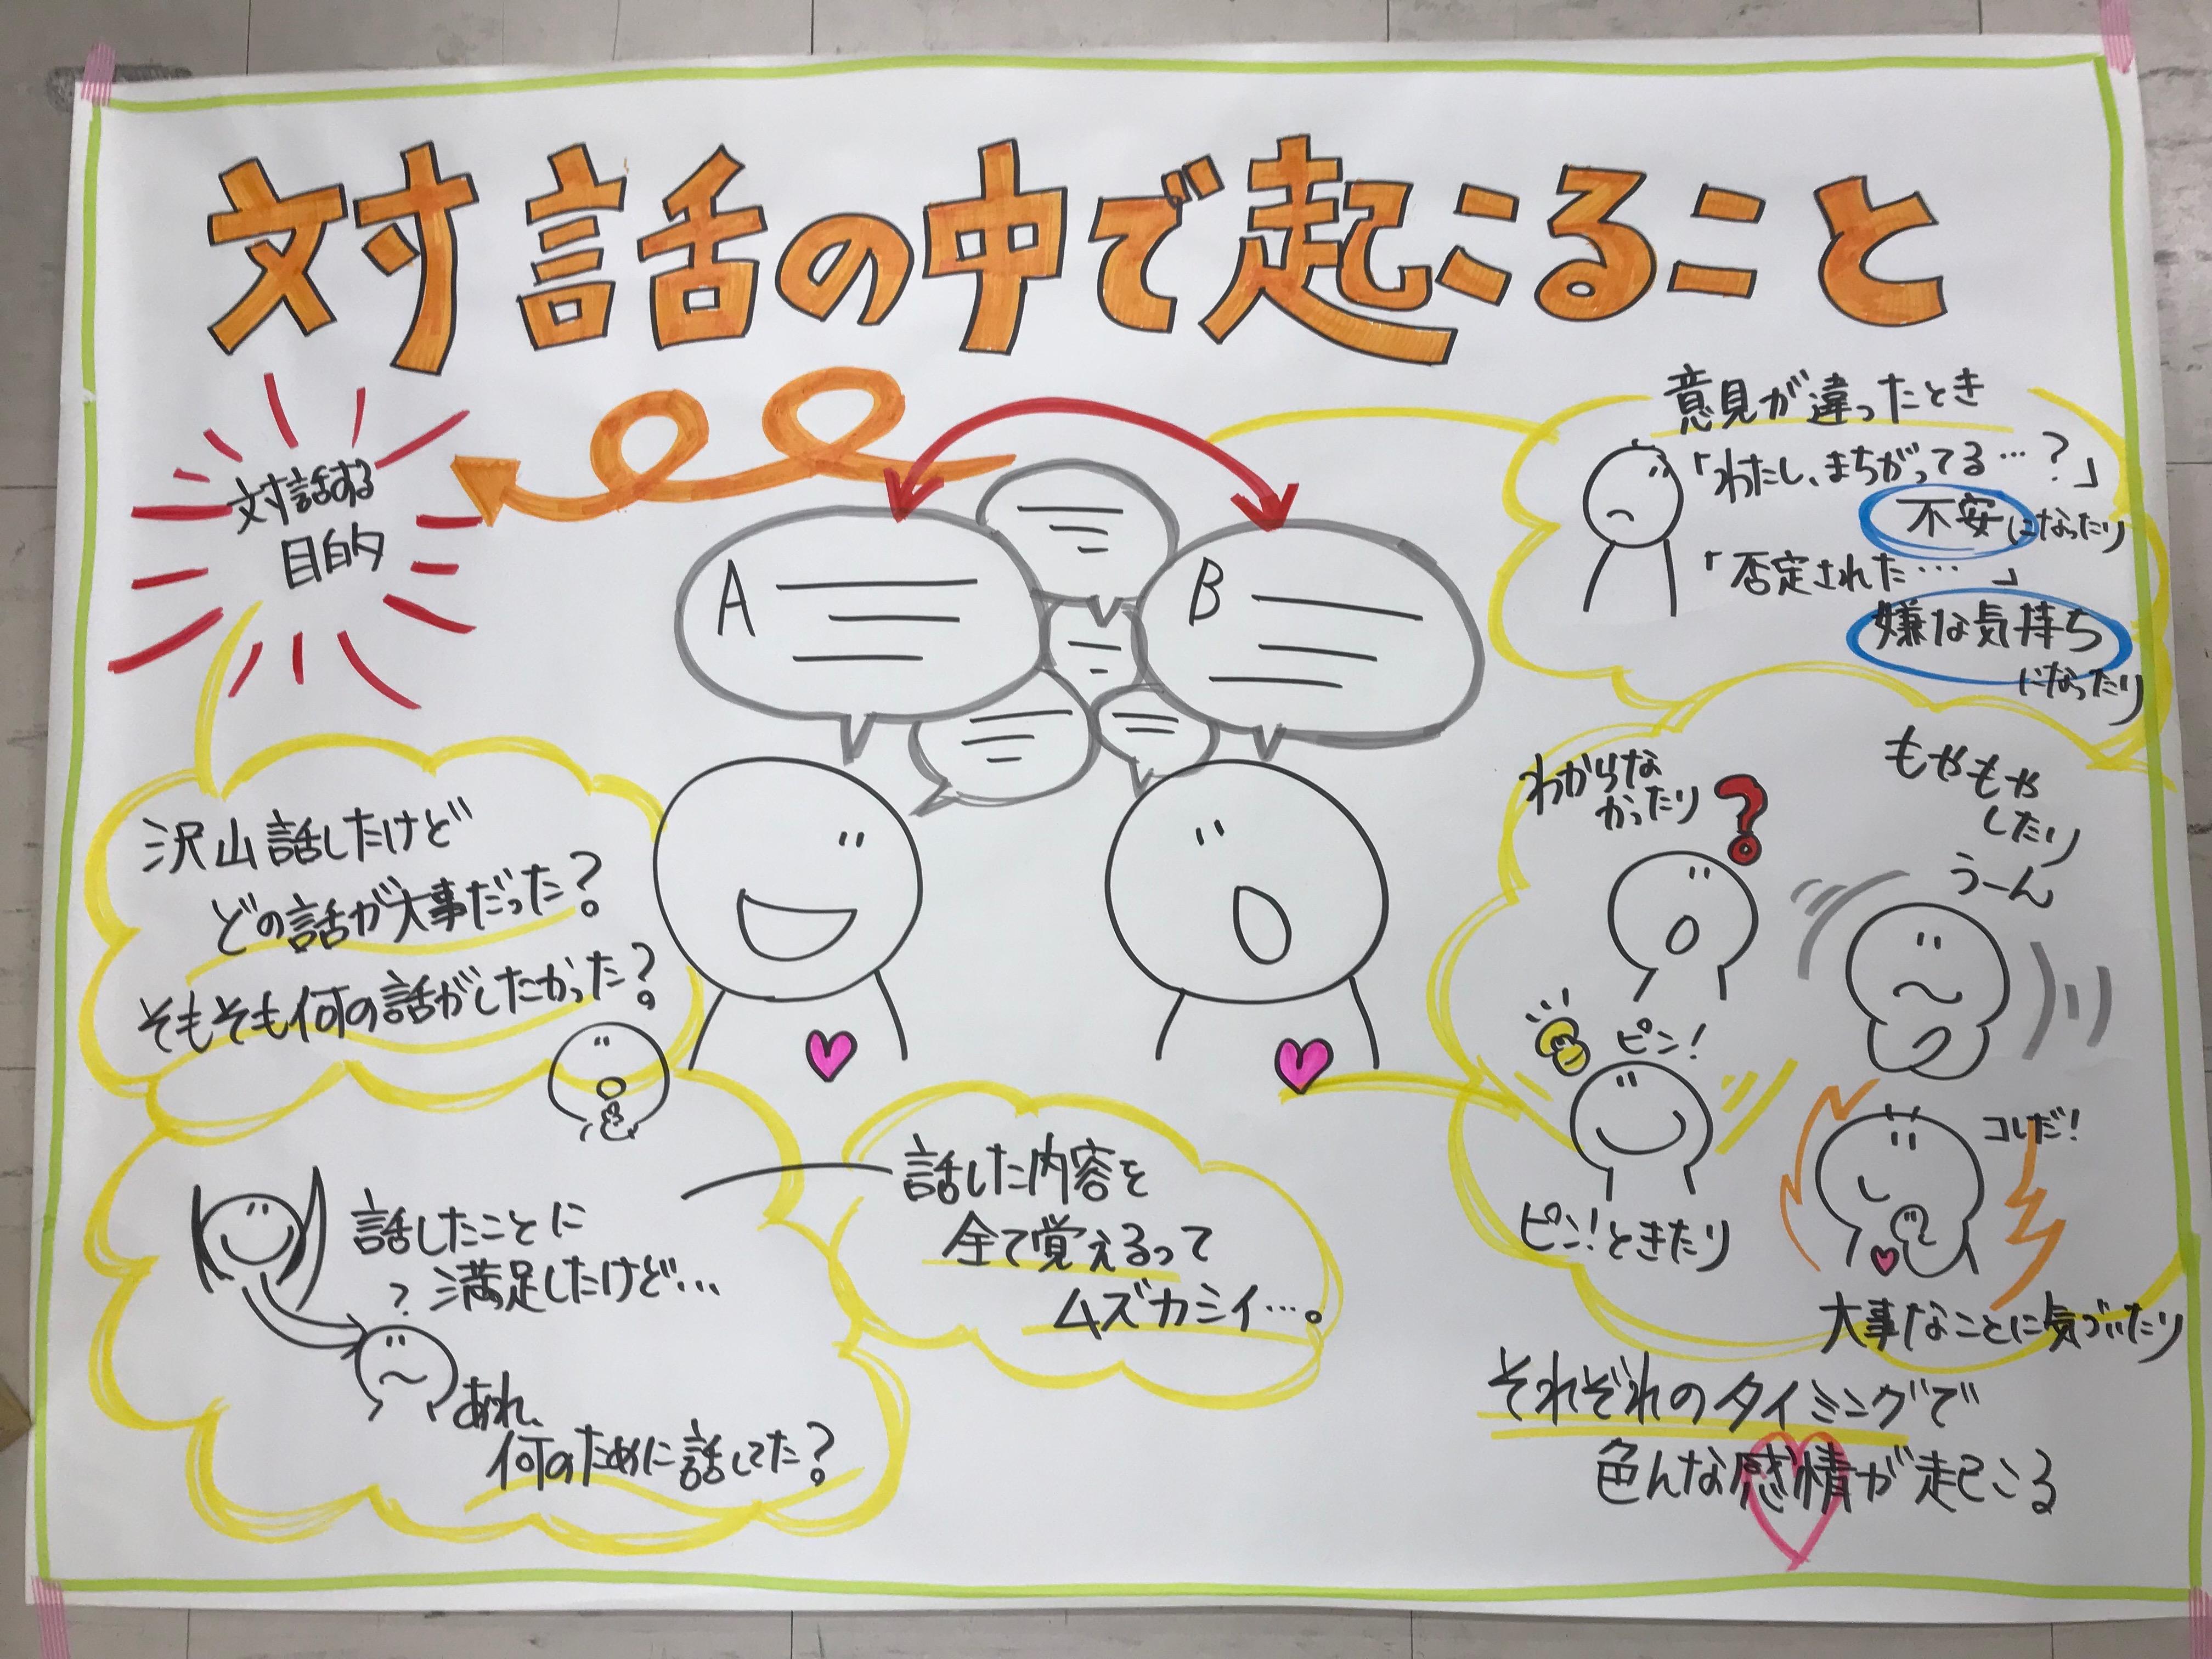 対話の中で起こること
対話する
目的
A
B
意見が違ったとき
「わたし、まちがってる…?」
不安になったり
「否定された…」
嫌な気持ち
になったり
沢山話したけど
どの話が大事だった?
そもそも何の話がしたかった?
わからな
かったり
?
もやもや
したり
うーん
ピン!
ピン!ときたり
コレだ!
大事なことに気づいたり
話したことに
満足したけど…
?
あれ、
何のために話してた?
話した内容を
全て覚えるって
ムズカシイ…。
それぞれのタイミングで
色んな感情が起こる